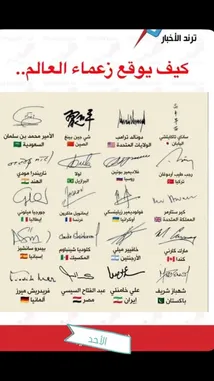 ترند الأخبار
كيف يوقع زعماء العالم..
ساناي تاكايتشي
اليابان
دونالد ترامب
الولايات المتحدة
شي جين بينغ
الصين
الأمير محمد بن سلمان
السعودية
رجب طيب أردوغان
تركيا
فلاديمير بوتين
روسيا
لولا
البرازيل
ناريندرا مودي
الهند
كير ستارمر
المملكة المتحدة
فولوديمير زيلينسكي
أوكرانيا
إيمانويل ماكرون
فرنسا
جورجيا ميلوني
إيطاليا
مارك كارني
كندا
خافيير ميلي
الأرجنتين
كلوديا شينباوم
المكسيك
بيدرو سانشيز
إسبانيا
شهباز شريف
باكستان
علي خامنئي
إيران
عبد الفتاح السيسي
مصر
فريدريش ميرز
ألمانيا
الأحد